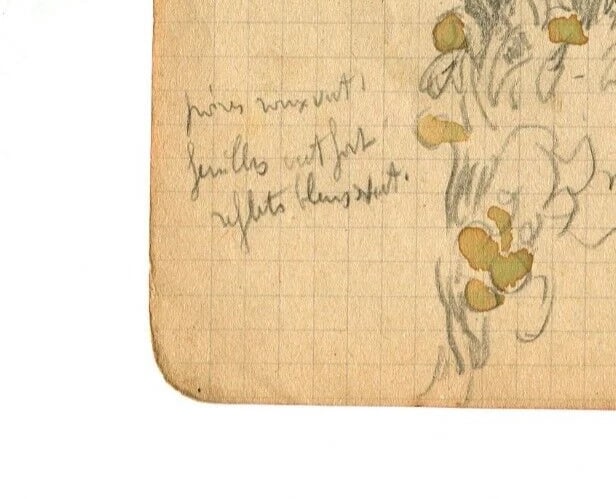 poires roux vert.
feuilles vert fort
reflets bleus vert.